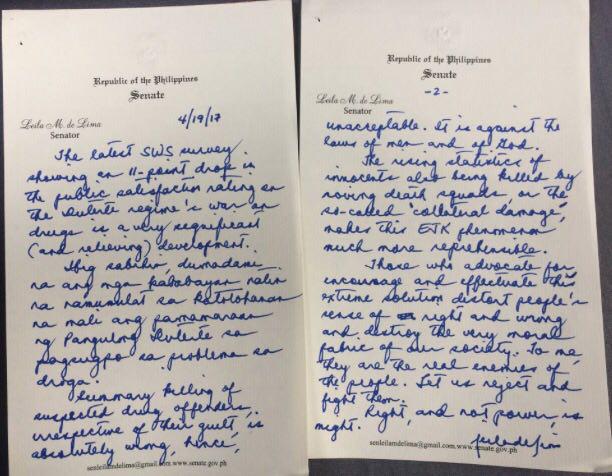 Republic of the Philippines
Senate
Leila M. de Lima
Senator
4/19/17
The latest SWS survey
showing an 11-point drop in
the public satisfaction rating on
the Duterte regime's war on
drugs is a very significant
(and relieving) development.
Ibig sabihin, dumadami
na ang mga kababayan natin
na namumulat sa katotohanan
na mali ang pamamaraan
ng Pangulong Duterte sa
pagsugpo sa problema sa
droga.
Summary killing of
suspected drug offenders,
irrespective of their guilt, is
absolutely wrong, hence,
senleilamdelima@gmail.com www.senate.gov.ph
Republic of the Philippines
Senate
-2-
Leila M. de Lima
Senator
unacceptable. It is against the
laws of men and of God.
The rising statistics of
innocents also being killed by
roving death squads or the
so-called "collateral damage",
makes this EJK phenomenon
much more reprehensible.
Those who advocate for
encourage and effectuate this
extreme solution distort people's
sense of right and wrong
and destroy the very moral
fabric of our society. To me
they are the real enemies of
the people. Let us reject and
fight them.
Right, and not power, is
might.
senleilamdelima@gmail.com www.senate.gov.ph